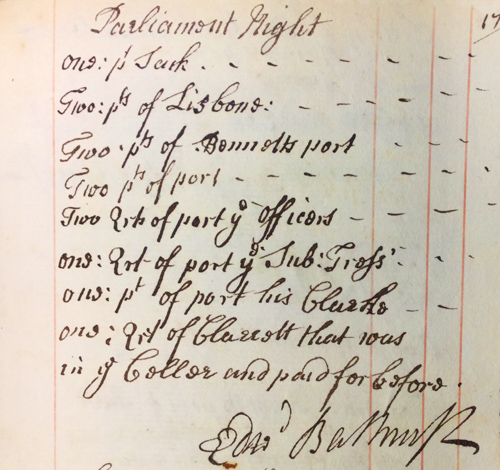 Parliament Night 17
one: pt Sack. - - - - -
Two: pts of Lisbone: - - - -
Two: pts of Bennetts port - - -
Two pts of port - - - - -
Two Qrts of port ye officers - - -
one: Qrt of port ye Sub: Tress[r] - -
one: pt of port his Clarke - -
one: Qrt of Clarrett that was
in ye Celler and paid for before.
Edwd Bathurst